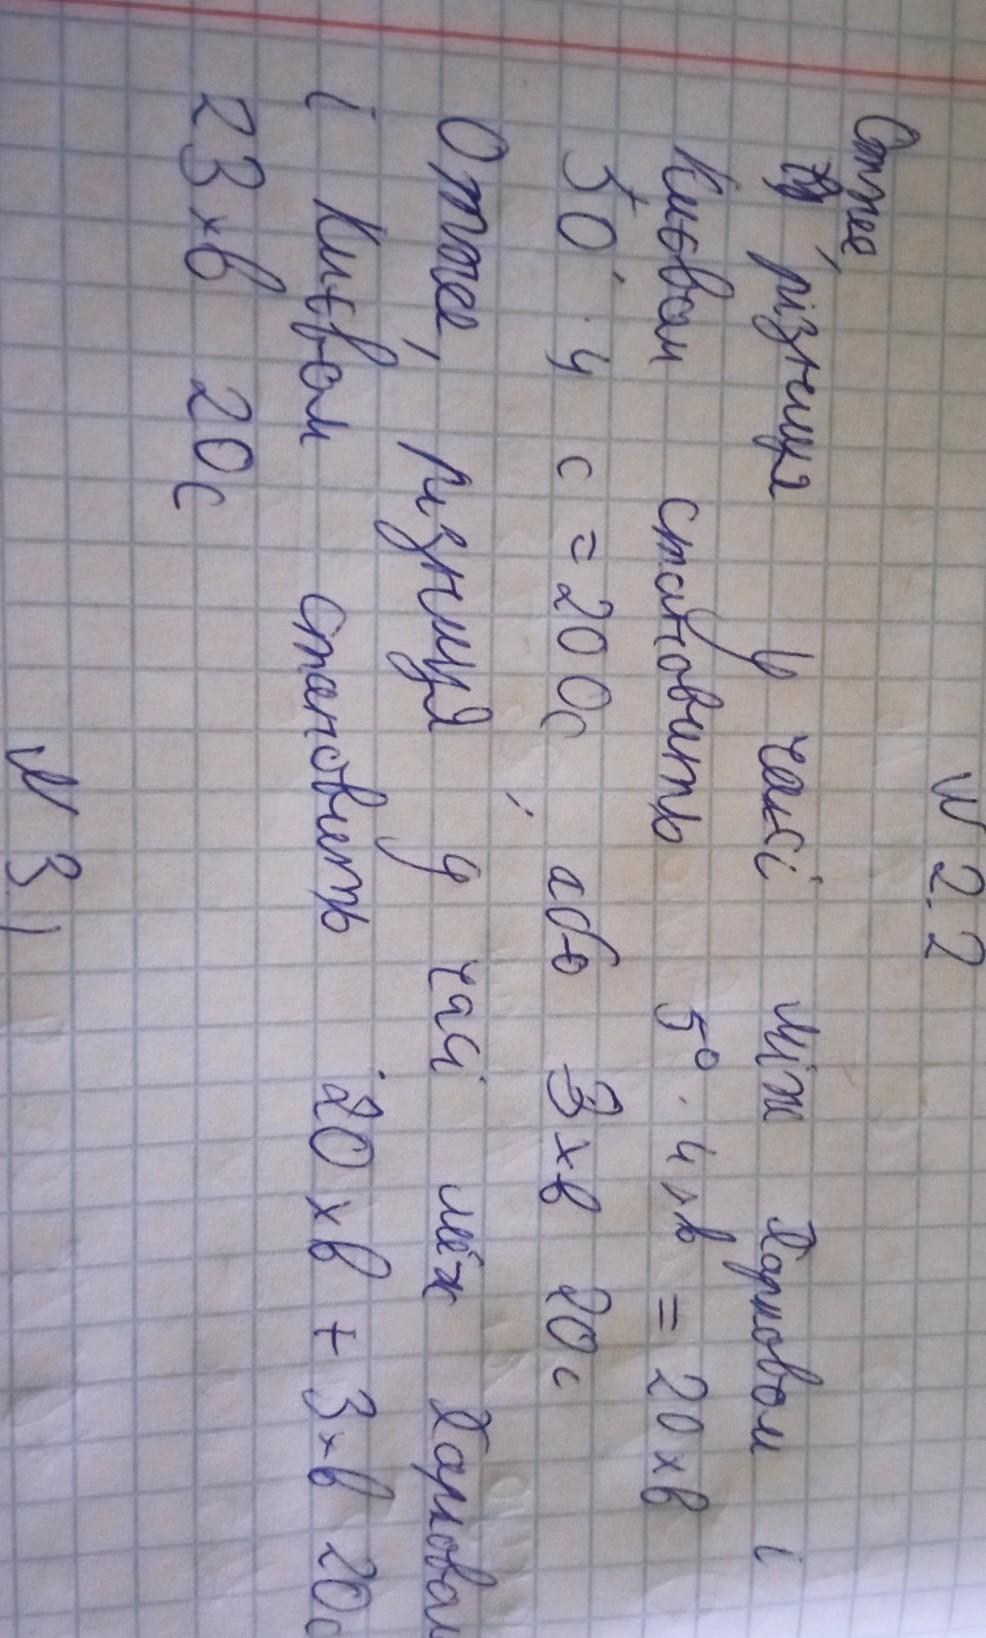 N 2.2
Отже, різниця у часі між Харковом і
Києвом становить 5° · 4хв = 20хв
50' · 4 с = 200с, або 3хв 20с
Отже, різниця у часі між Харковом
і Києвом становить 20хв + 3хв 20с
23хв 20с
N 3.1